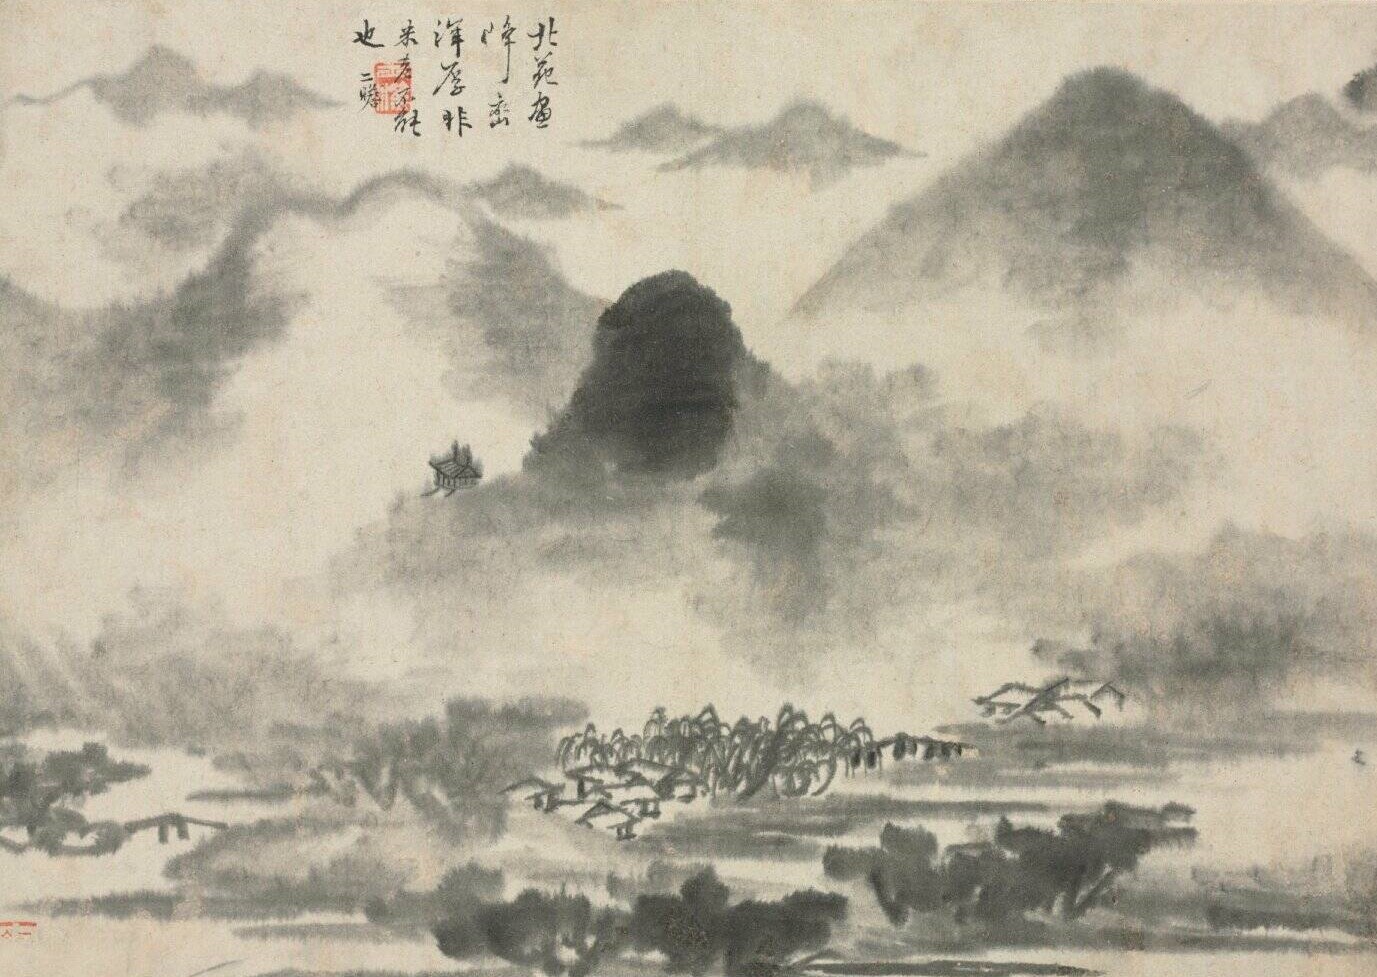 北苑畫
峰巒
渾厚非
米老不能
也 二瞻